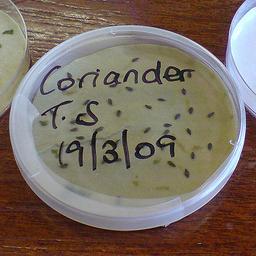 Coriander
T.S
19/3/09